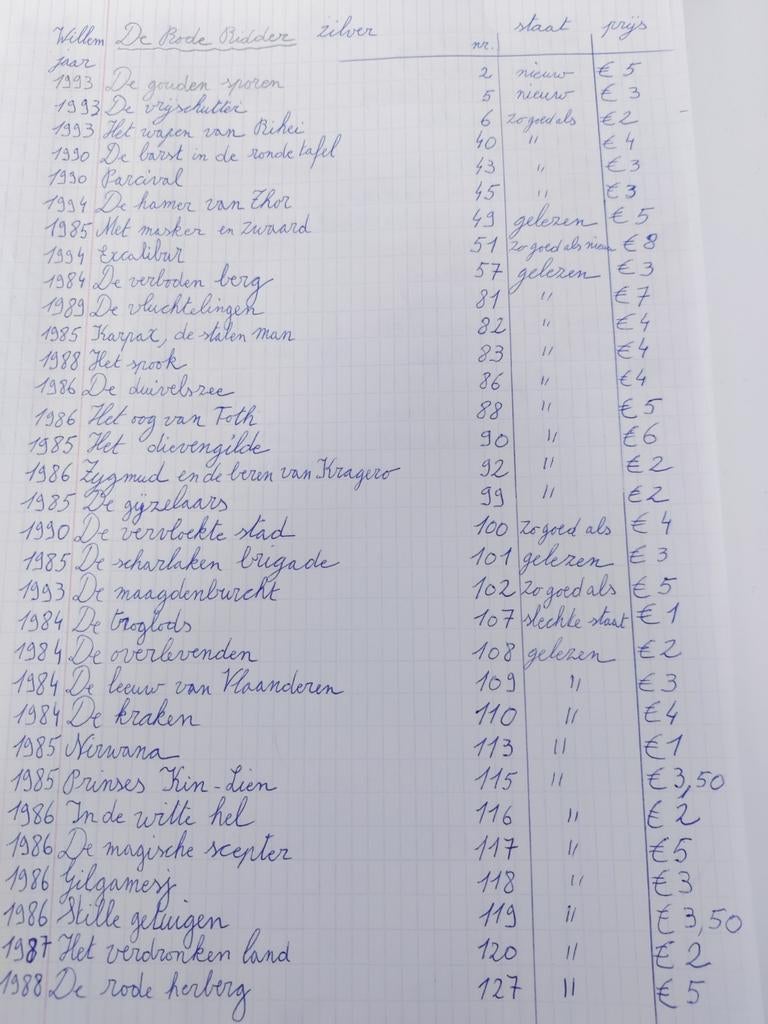 Willem De Rode Ridder zilver staat prijs
jaar nr.
1993 De gouden sporen 2 nieuw € 5
1993 De vrijschutter 5 nieuw € 3
1993 Het wapen van Rihei 6 zo goed als € 2
1990 De barst in de ronde tafel 40 " € 4
1990 Parcival 43 " € 3
1994 De hamer van Thor 45 " € 3
1985 Met masker en zwaard 49 gelezen € 5
1994 Excalibur 51 zo goed als nieuw € 8
1984 De verboden berg 57 gelezen € 3
1989 De vluchtelingen 81 " € 7
1985 Karpax, de stalen man 82 " € 4
1988 Het spook 83 " € 4
1986 De duivelszee 86 " € 4
1986 Het oog van Toth 88 " € 5
1985 Het dievengilde 90 " € 6
1986 Zygmud en de beren van Kragero 92 " € 2
1985 De gijzelaars 99 " € 2
1990 De vervloekte stad 100 zo goed als € 4
1985 De scharlaken brigade 101 gelezen € 3
1993 De maagdenburcht 102 zo goed als € 5
1984 De troglods 107 slechte staat € 1
1984 De overlevenden 108 gelezen € 2
1984 De leeuw van Vlaanderen 109 " € 3
1984 De kraken 110 " € 4
1985 Nirwana 113 " € 1
1985 Prinses Kin-Lien 115 " € 3,50
1986 In de witte hel 116 " € 2
1986 De magische scepter 117 " € 5
1986 Gilgamesj 118 " € 3
1986 Stille getuigen 119 " € 3,50
1987 Het verdronken land 120 " € 2
1988 De rode herberg 127 " € 5